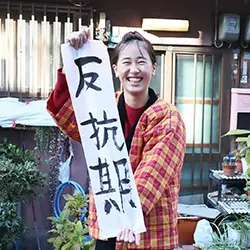 反抗期